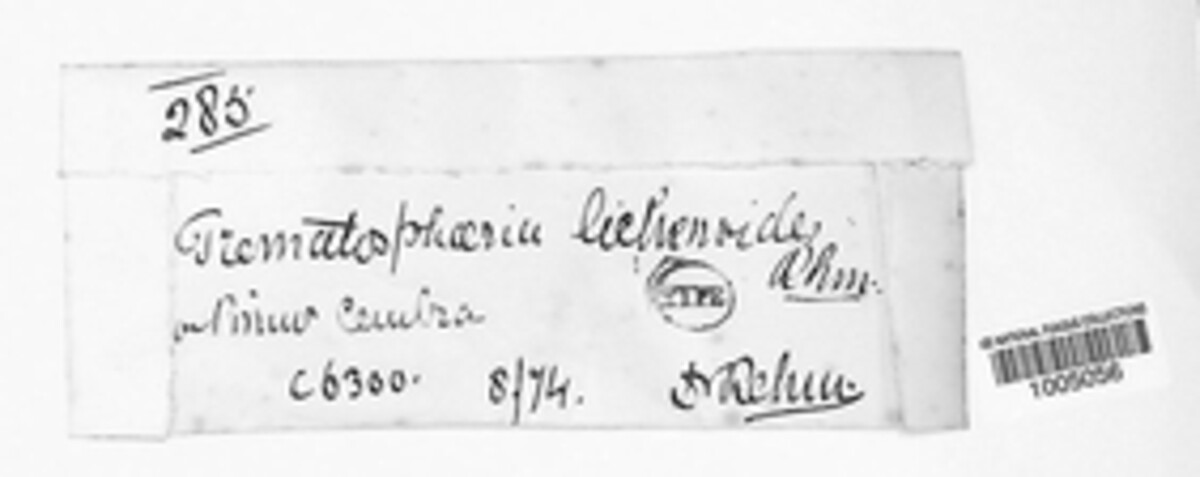 285
Trematosphaeria lichenoides
Rhm.
TYPE
Pinus Cembra
c 6300. 8/74. Dr Rehm.
US NATIONAL FUNGUS COLLECTIONS
1005056